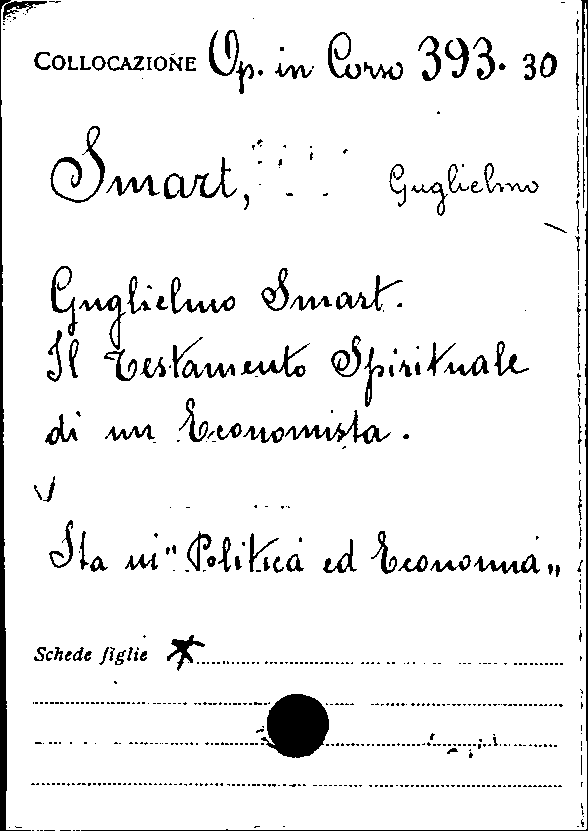 COLLOCAZIONE Op. in Corso 393. 30
Smart, Guglielmo
Guglielmo Smart.
Il Testamento Spirituale
di un Economista.
Sta in "Politica ed Economia„
Schede figlie